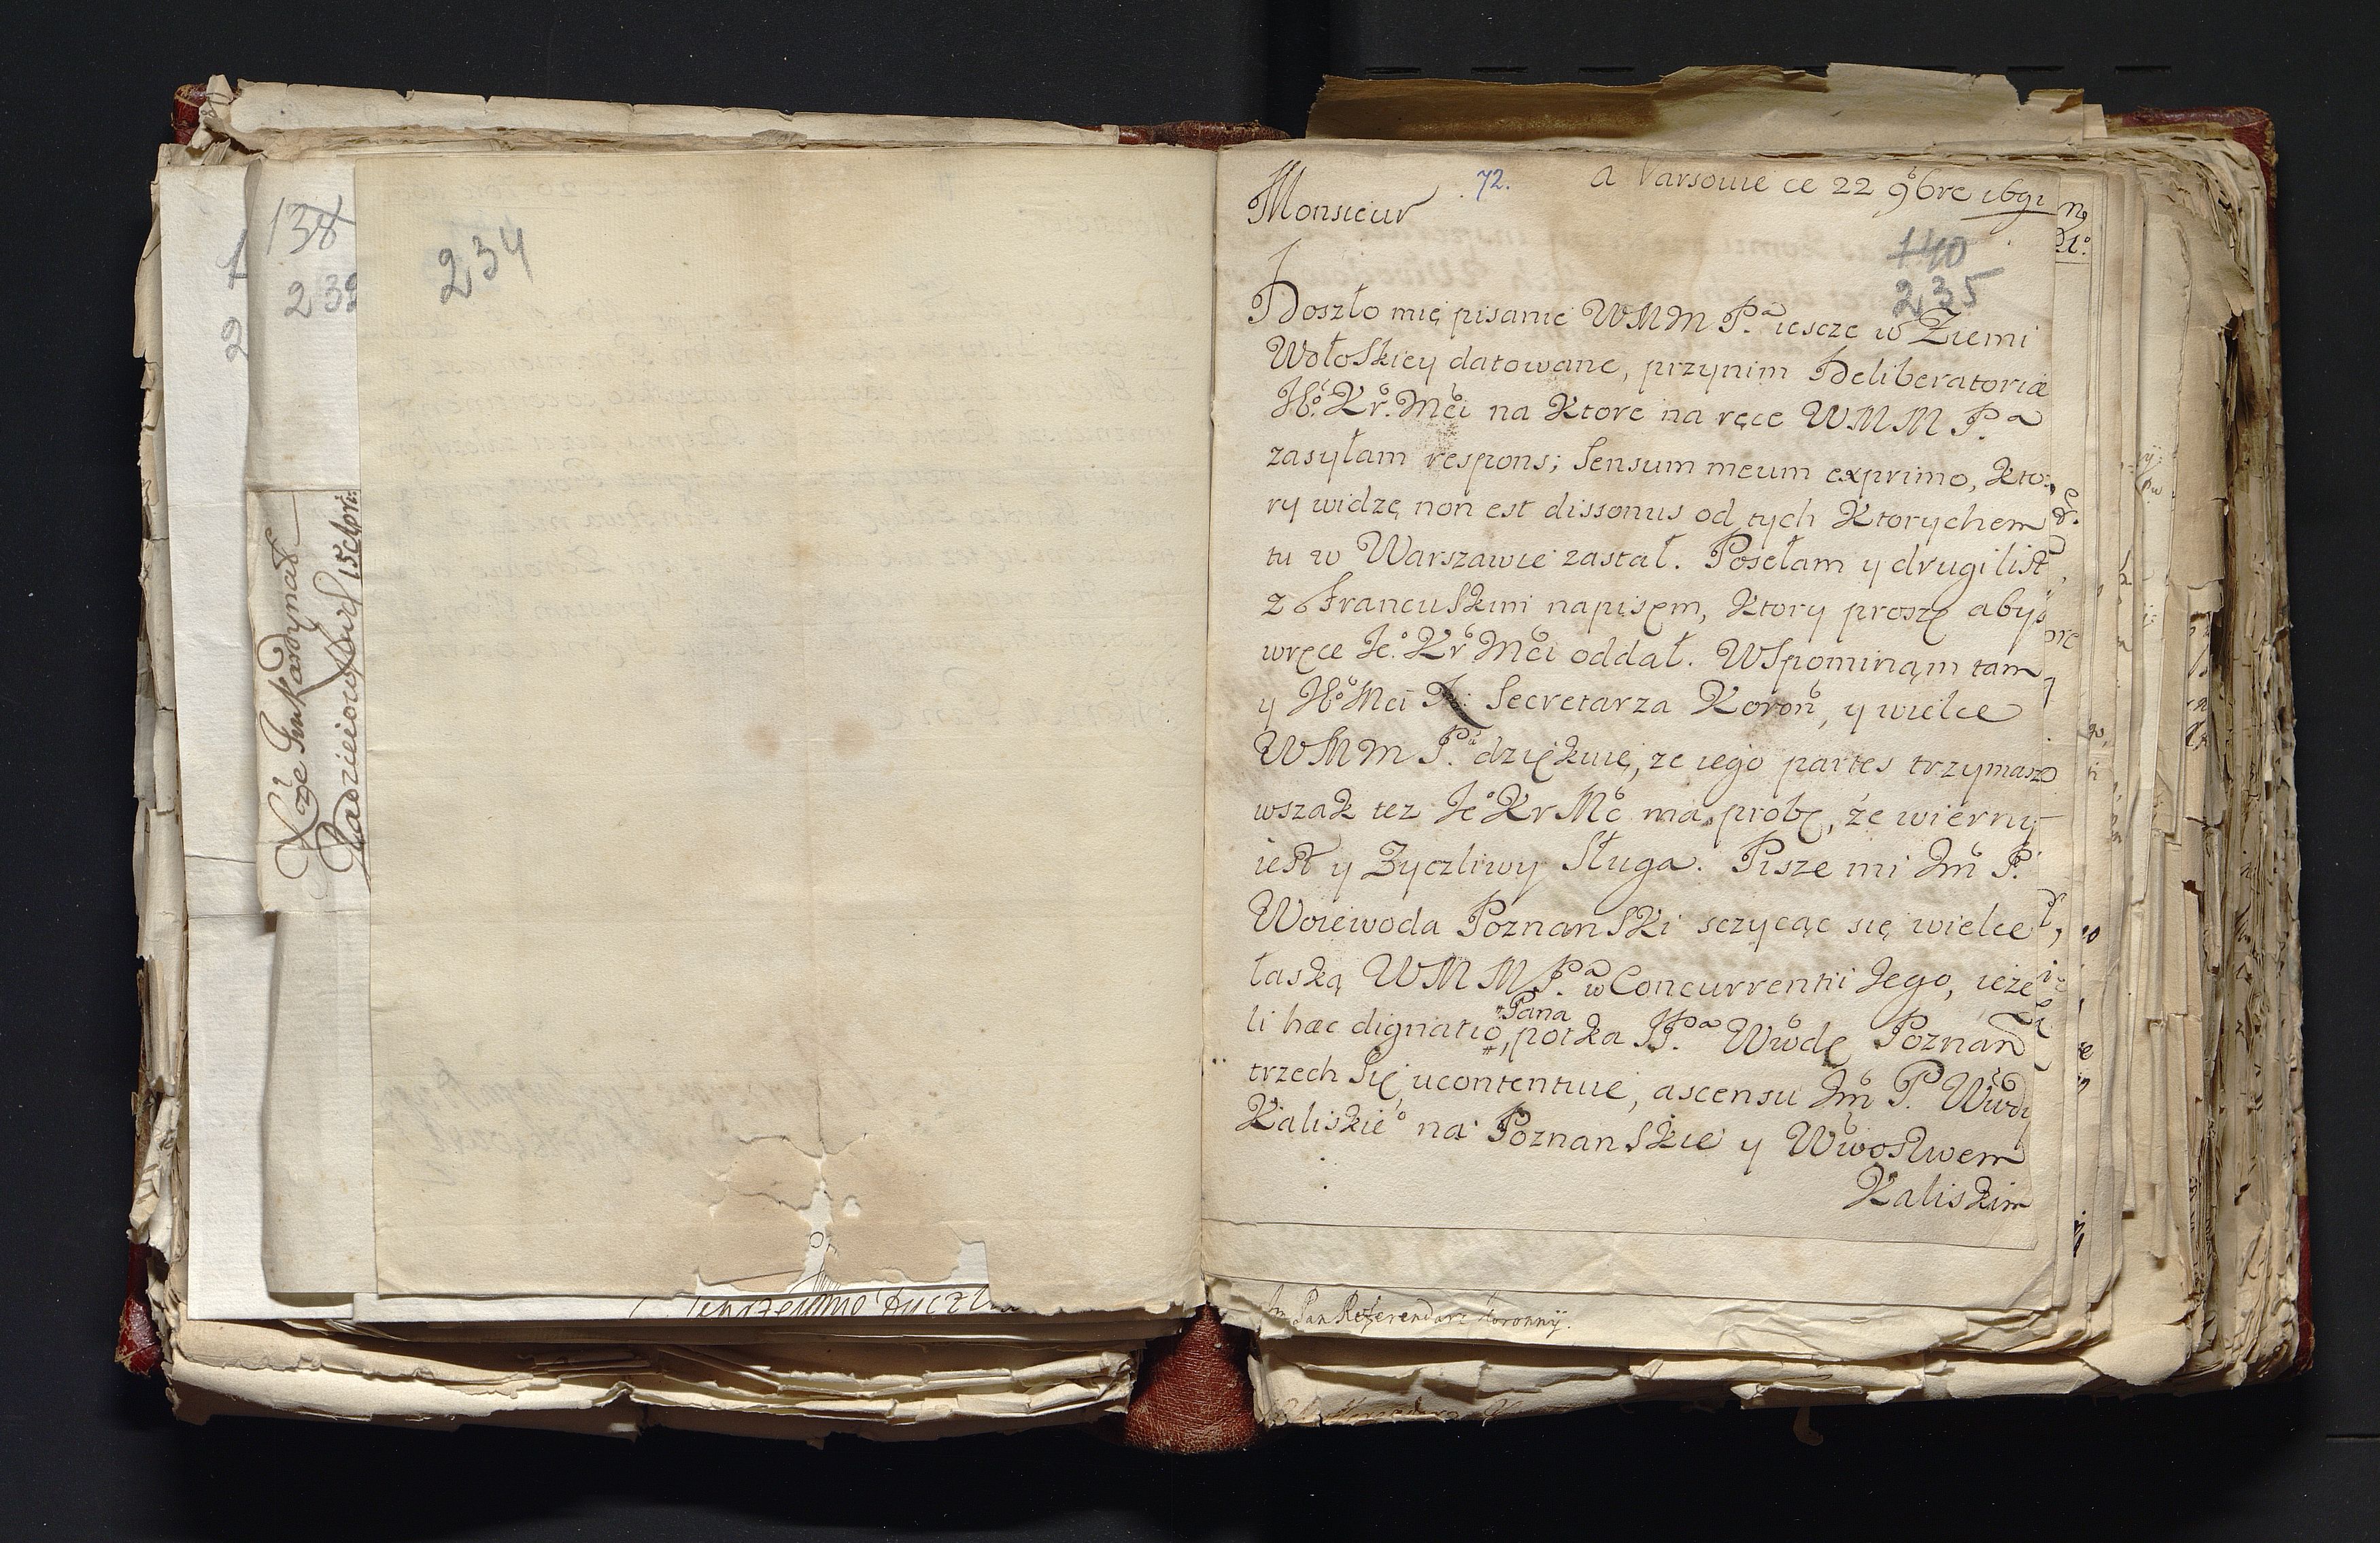 138
232
Xże Im Kardynał
Radzieiowski 15 octobris
234
Monsieur
72.
a Varsovie ce 22 9bre 1691
140
235
Doszło mię pisanie WMM P.a iescze w Ziemi
Wołoskiey datowane, przynim Deliberatoriæ
JKo. Kr. Mći na ktore na ręce WMM P.a
zasyłam respons; Sensum meum exprimo, kto:
ry widzę non est dissonus od tych ktorychem
tu w Warszawie zastał. Posełam y drugi list
z Francuskim napisęm, ktory proszę abyś
wręce Je.o Kr Mći oddał. Wspominąm tam
y Jo Mći X: Secretarza Koroñ, y wielce
WMM P.u dziękuię, ze iego partes trzymasz
wszak tez Je.o Kr Mć ma probę, że wierny
iest y Zyczliwy Sługa. Pisze mi Jm̃ P.
Woiewoda Poznanski sczycąc się wielce
łaską WMM P.a w Concurrentii Jego, ieże
li hæc dignatio, Pana potka JP.a Wwdę Poznañ
trzech się ucontentuie, ascensu Jm̃ P. Wwdy
Kaliskie.o na Poznanskie y Wwostwem
Kaliskim
Im Pan Referendarz Koronnÿ.